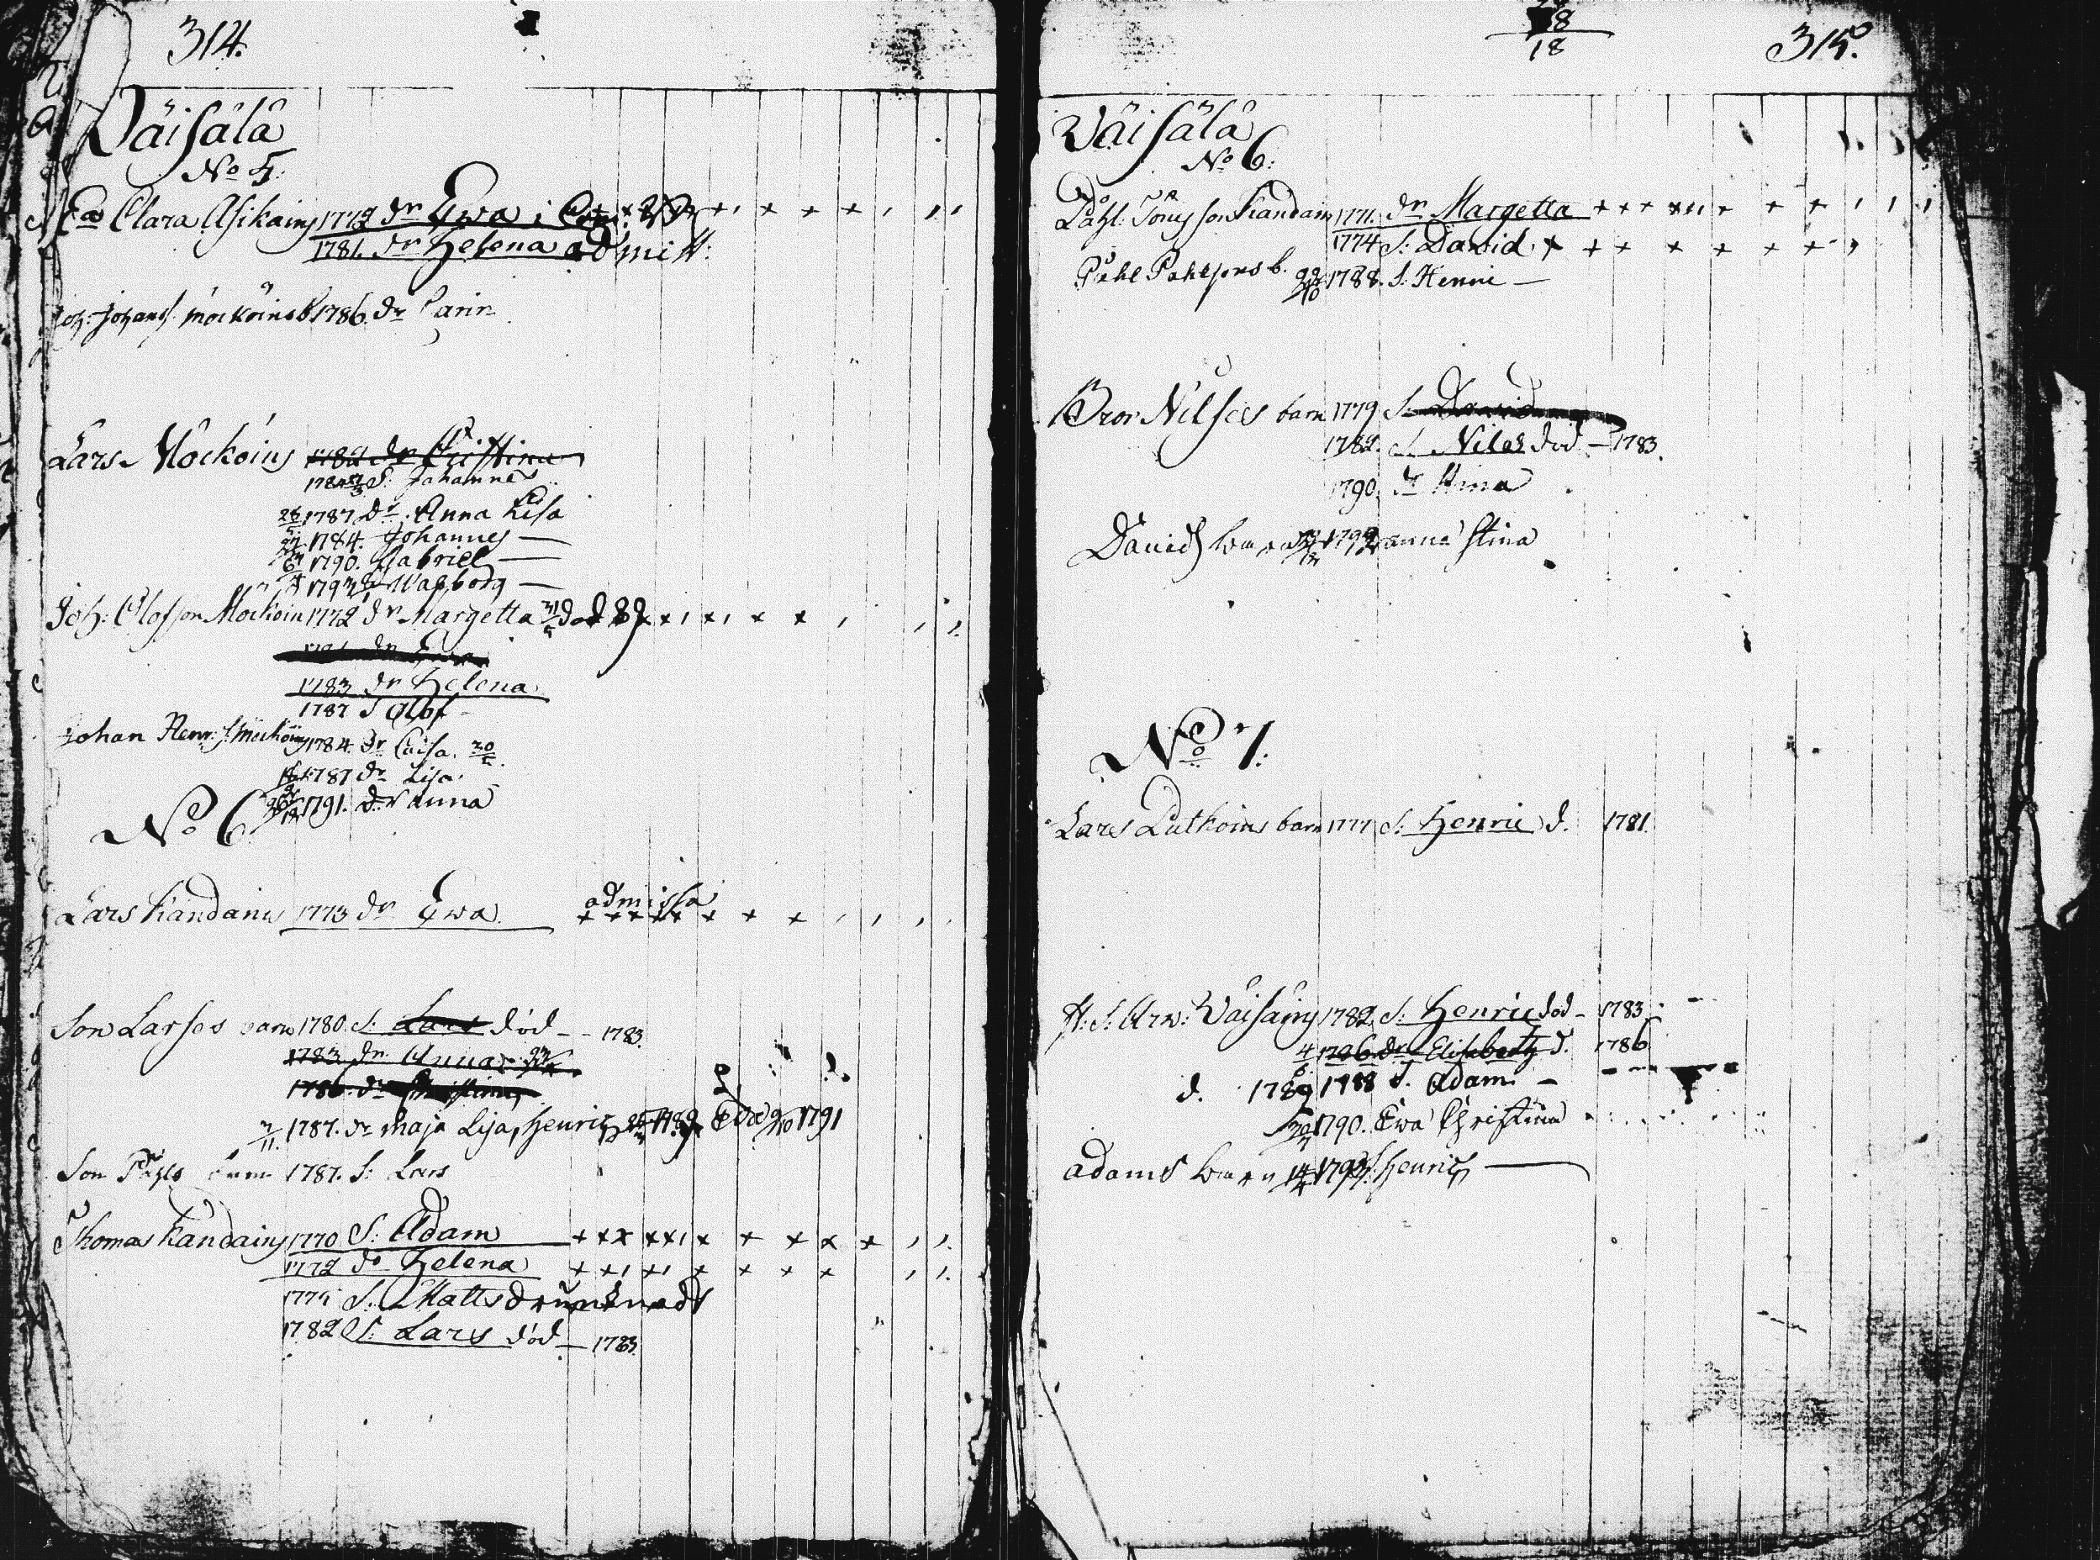 314.
Wäisälä
No 5.
Clara Asikains 1772 dr Ewa
1781. dr Helena admitt:
Joh: Johans Mocköins b 1786. dr Carin
Lars Mocköins 1782 dr Cristina
S: Johannes
28 1787 dr. Anna Lisa
1784. Johannes —
1790. Gabriel —
1793 Walborg —
Joh: Olofsson Mocköin 1772 dr Margetta 31/5 död 89
1783 dr Helena
1787 S Olof
Johan Henr: s. Möcköins 1784. dr Caisa. 20/5.
1787 dr Lisa
1791. dr Anna
No 6
admissa
Lars Kändains 1773 dr Ewa
Son Larses barn 1780. S: Lars död — 1783.
1783 dr. Anna
1786. dr Christina
7/11. 1787. dr Maja Lisa, Henric 1789 död 9/10 1791
Son Påhls barn 1787. S: Lars
Thomas Kändains 1770 S: Adam
1772 dr Helena
1775 S: Matts drunknadt
1782 S: Lars död — 1783.
8
18
315.
Wäisälä
No 6:
Påhl: Tönisson Kändain 1771. dr Margetta
1774 S: David
Påhl Påhlsons b. 22/10 1788. S: Henric —
Bror Nilses barn 1779 S: David
1782. S. Nils död — 1783.
1790. dr Anna
Davids barn 1792 Anna Stina
No 7:
Lars Lutkoins barn 1777 S: Henric d. 1781.
H: S: Arw: Wäisäins 1782. S: Henric död — 1783
4 1786 dr Elisabeth d. 1786
d. 1789 1788 S. Adam —
1790. Ewa Christina
Adams barn 14/4 1793 S. Henric —